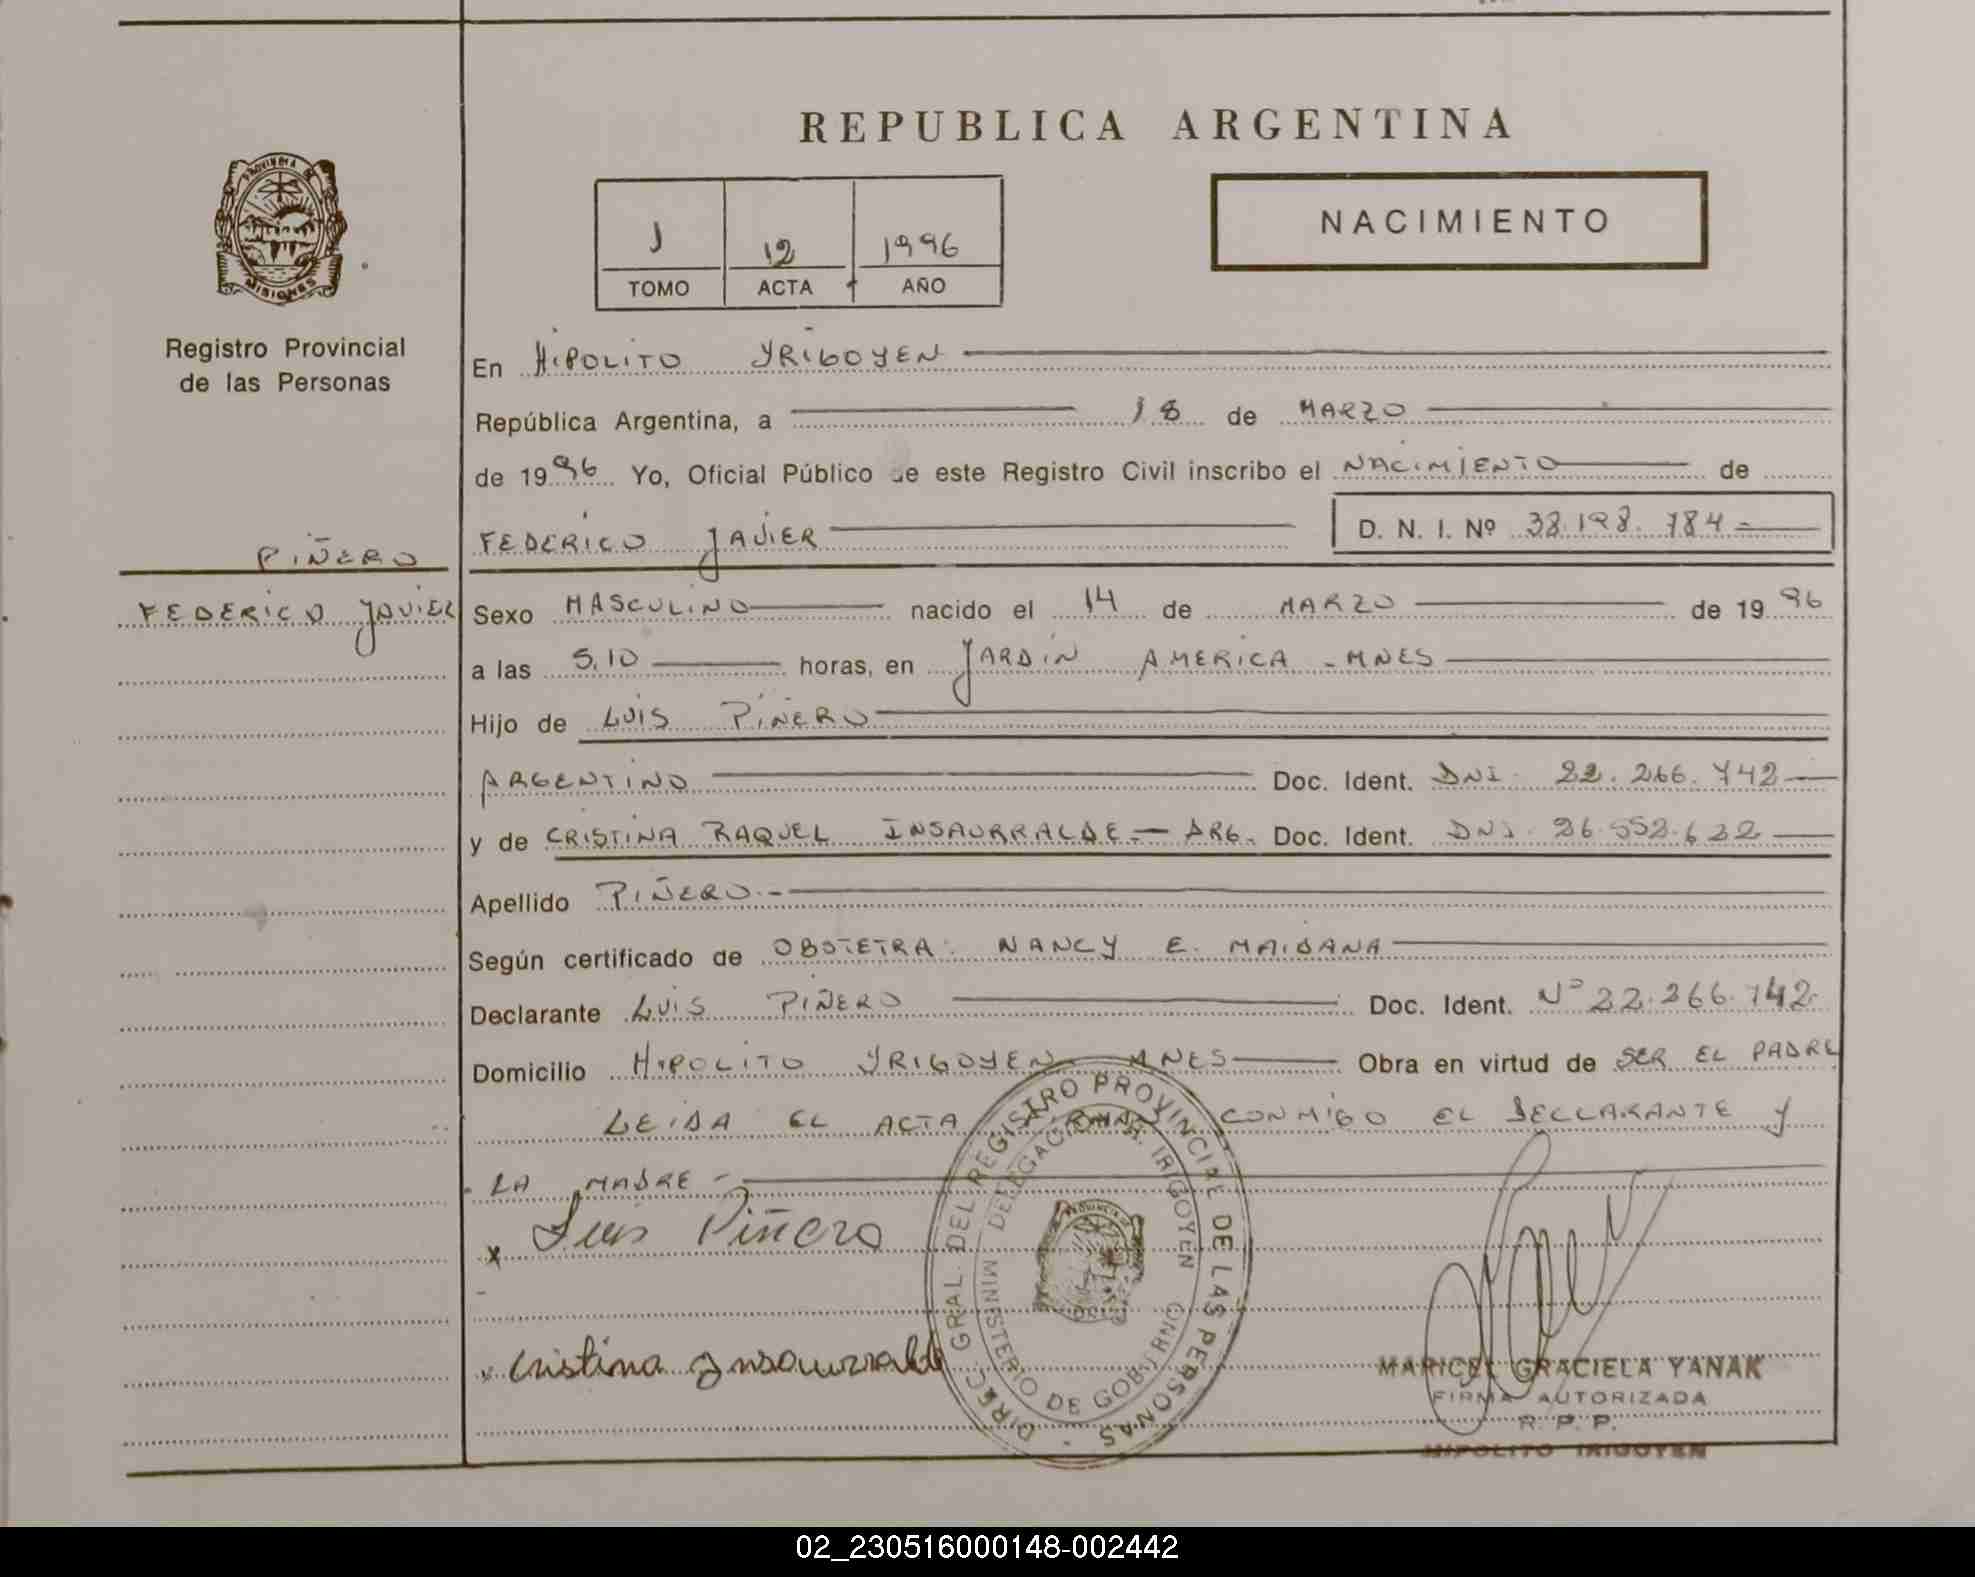 REPUBLICA ARGENTINA
PROVINCIA DE
MISIONES
Registro Provincial
de las Personas
1 12 1996
TOMO ACTA AÑO
NACIMIENTO
En HIPOLITO YRIGOYEN
República Argentina, a 18 de MARZO
de 1996 Yo, Oficial Público de este Registro Civil inscribo el NACIMIENTO de
FEDERICO JAVIER D. N. I. Nº 38.198.784
PIÑERO
FEDERICO JAVIER
Sexo MASCULINO nacido el 14 de MARZO de 1996
a las 5,10 horas, en JARDIN AMERICA - MNES
Hijo de LUIS PIÑERO
ARGENTINO Doc. Ident. DNI. 22.266.742
y de CRISTINA RAQUEL INSAURRALDE.- ARG. Doc. Ident. DNI. 26.552.622
Apellido PIÑERO.-
Según certificado de OBSTETRA: NANCY E. MAIDANA
Declarante LUIS PIÑERO Doc. Ident. Nº 22.266.742
Domicilio HIPOLITO YRIGOYEN MNES Obra en virtud de SER EL PADRE
LEIDA EL ACTA CONMIGO EL DECLARANTE Y
LA MADRE -
x Luis Piñero
x Cristina Insaurralde
DIREC. GRAL. DEL REGISTRO PROVINCIAL DE LAS PERSONAS
MINISTERIO DE GOBIERNO
IRIGOYEN
MARICEL GRACIELA YANAK
FIRMA AUTORIZADA
R. P. P.
HIPOLITO IRIGOYEN
02_230516000148-002442